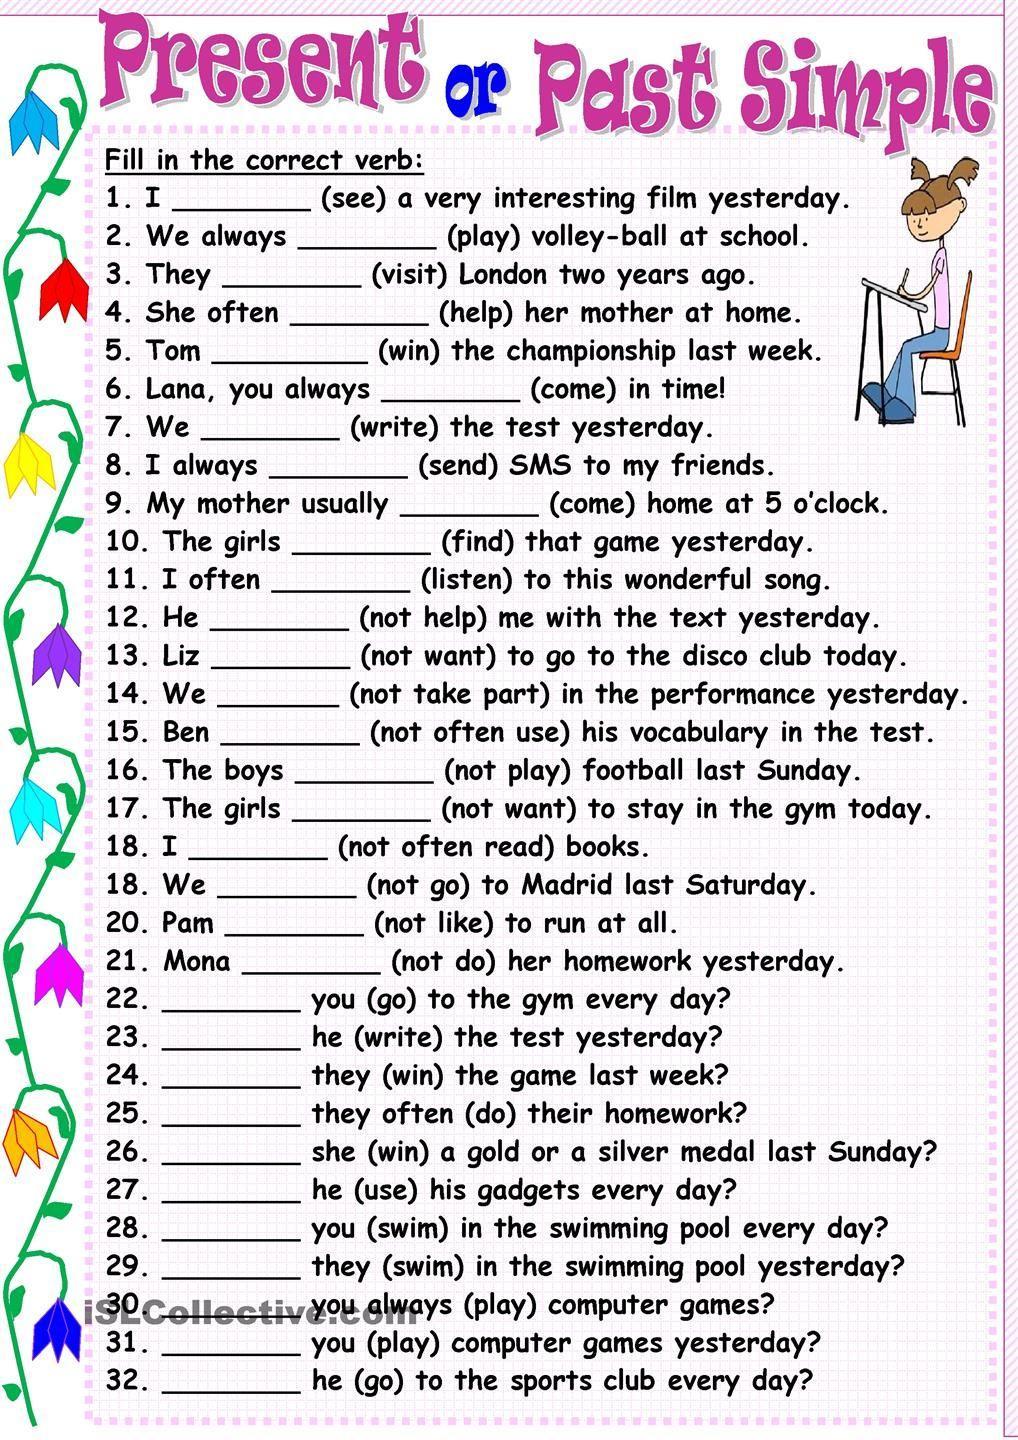 Present or Past Simple
Fill in the correct verb:
1. I _________ (see) a very interesting film yesterday.
2. We always _________ (play) volley-ball at school.
3. They _________ (visit) London two years ago.
4. She often _________ (help) her mother at home.
5. Tom __________ (win) the championship last week.
6. Lana, you always _________ (come) in time!
7. We _________ (write) the test yesterday.
8. I always _________ (send) SMS to my friends.
9. My mother usually _________ (come) home at 5 o’clock.
10. The girls _________ (find) that game yesterday.
11. I often _________ (listen) to this wonderful song.
12. He _________ (not help) me with the text yesterday.
13. Liz _________ (not want) to go to the disco club today.
14. We ________ (not take part) in the performance yesterday.
15. Ben _________ (not often use) his vocabulary in the test.
16. The boys _________ (not play) football last Sunday.
17. The girls _________ (not want) to stay in the gym today.
18. I _________ (not often read) books.
18. We _________ (not go) to Madrid last Saturday.
20. Pam _________ (not like) to run at all.
21. Mona _________ (not do) her homework yesterday.
22. _________ you (go) to the gym every day?
23. _________ he (write) the test yesterday?
24. _________ they (win) the game last week?
25. _________ they often (do) their homework?
26. _________ she (win) a gold or a silver medal last Sunday?
27. _________ he (use) his gadgets every day?
28. _________ you (swim) in the swimming pool every day?
29. _________ they (swim) in the swimming pool yesterday?
30. _________ you always (play) computer games?
iSLCollective.com
31. _________ you (play) computer games yesterday?
32. _________ he (go) to the sports club every day?